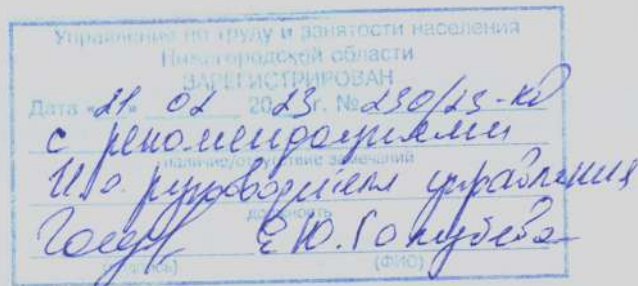 Управление по труду и занятости населения
Нижегородской области
ЗАРЕГИСТРИРОВАН
Дата «21» 02 2023г. № 230/23-КД
с рекомендациями
наличие/отсутствие замечаний
И.о. руководителя управления
должность
Е.Ю. Голубева
(подпись) (ФИО)